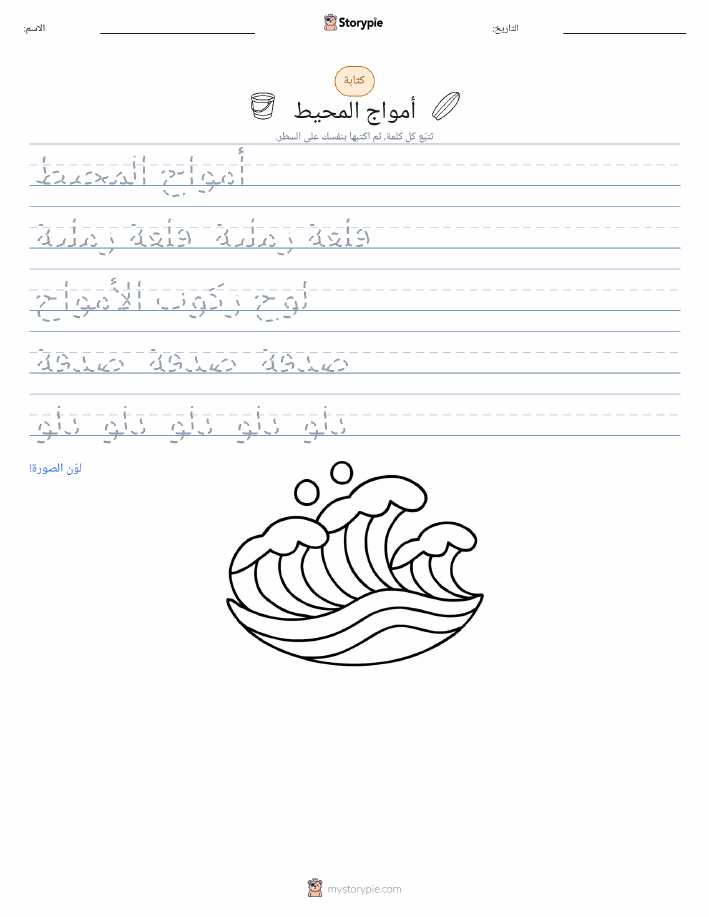 الاسم:
Storypie
التاريخ:
كتابة
أمواج المحيط
تتبّع كل كلمة، ثم اكتبها بنفسك على السطر.
أمواج المحيط
قلعة رملية قلعة رملية
لوح ركوب الأمواج
صدفة صدفة صدفة
دلو دلو دلو دلو دلو
لوّن الصورة!
mystorypie.com